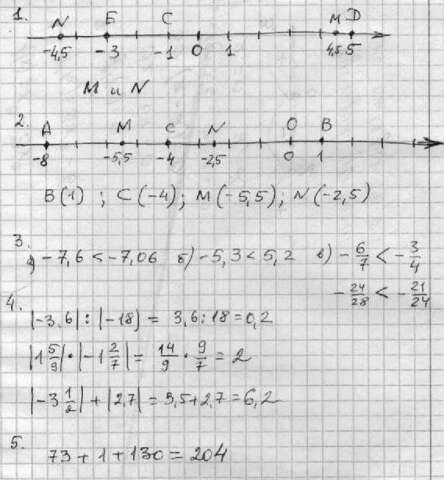 1. N Б C M D
-4,5 -3 -1 0 1 4,5 5
M и N
2. A M C N O B
-8 -5,5 -4 -2,5 0 1
B(1) ; C(-4); M(-5,5); N(-2,5)
3. а) -7,6 < -7,06 б) -5,3 < 5,2 в) -6/7 < -3/4
-24/28 < -21/24
4. |-3,6| : |-18| = 3,6 : 18 = 0,2
|1 5/9| · |-1 2/7| = 14/9 · 9/7 = 2
|-3 1/2| + |2,7| = 3,5 + 2,7 = 6,2
5. 73 + 1 + 130 = 204